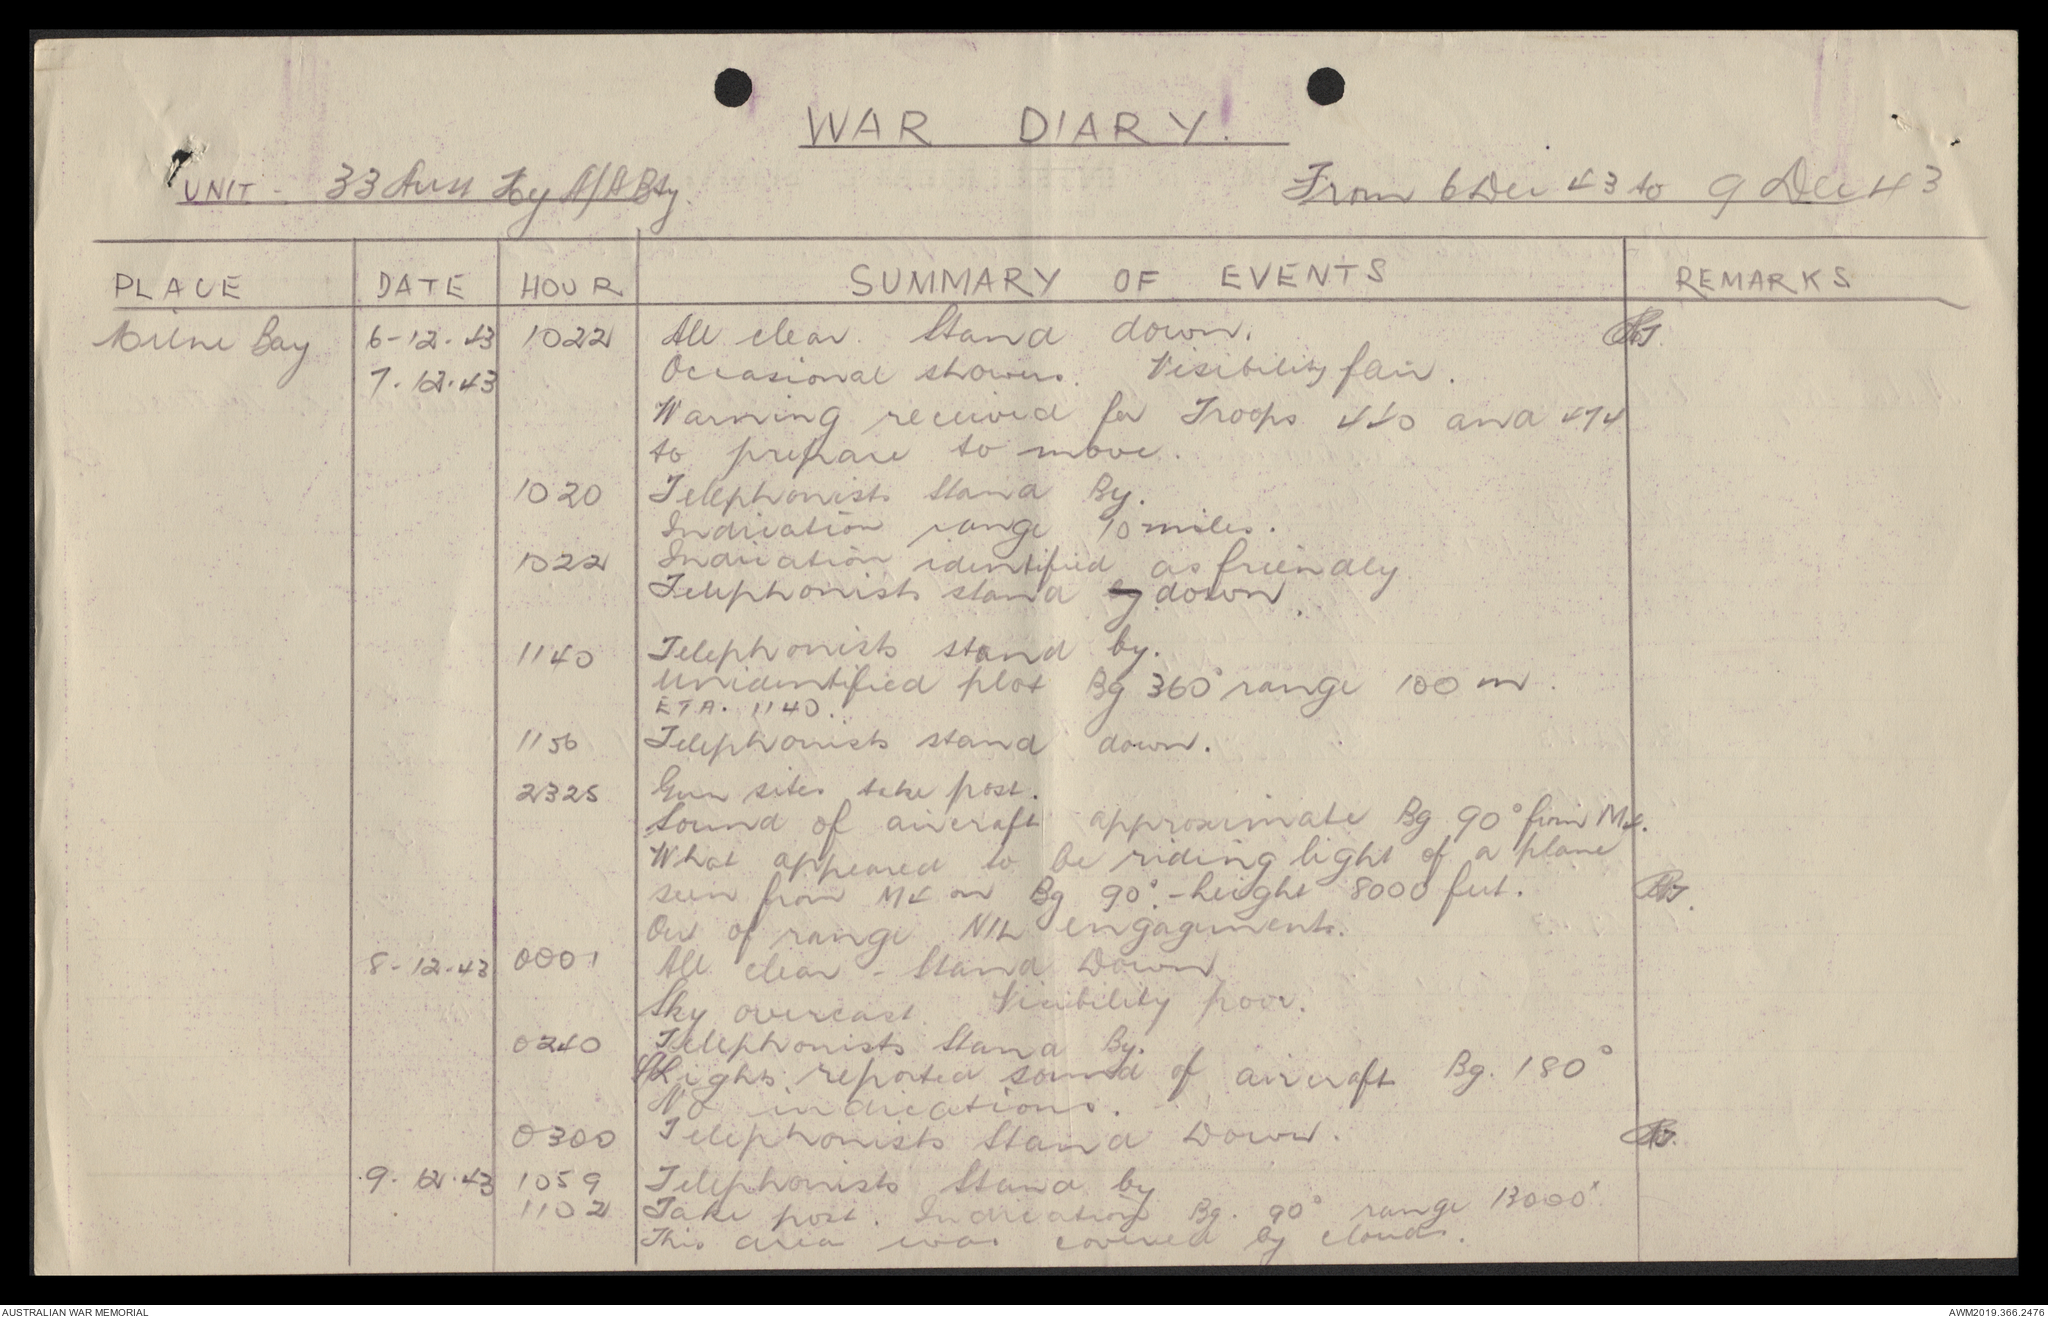 WAR DIARY.
UNIT - 33 Aust Hy A/A Bty.
From 6 Dec 43 to 9 Dec 43
PLACE DATE HOUR SUMMARY OF EVENTS REMARKS
Milne Bay 6-12-43 1022 All clear. Stand down.
7.12.43 Occasional showers. Visibility fair.
Warning received for Troops 440 and 474
to prepare to move.
1020 Telephonists Stand By.
Indication range 90 miles.
1022 Indication identified as friendly
Telephonists stand by down.
1140 Telephonists stand by.
Unidentified plot Bg 360° range 100 m.
ETA. 1140.
1150 Telephonists stand down.
2325 Gun sites take post.
Sound of aircraft approximate Bg 90° from M4.
What appeared to be riding light of a plane
seen from M4 on Bg 90° - height 8000 feet.
Out of range NIL engagements.
8-12-43 0001 All clear - Stand Down
Sky overcast. Visibility poor.
0240 Telephonists Stand By.
S/Lights reported sound of aircraft Bg. 180°
No indications.
0300 Telephonists Stand Down.
9.12.43 1059 Telephonists Stand by
1102 Take post. Indication Bg. 90° range 13000x
This area was covered by clouds.
AUSTRALIAN WAR MEMORIAL
AWM2019.366.2476